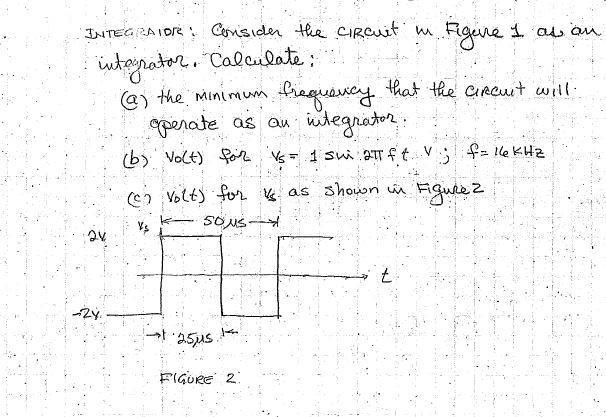 INTEGRATOR: Consider the CIRCUIT in Figure 1 as an
integrator. Calculate:
(a) the MINIMUM frequency that the CIRCUIT will
operate as an integrator.
(b) Vo(t) for Vs = 1 sin 2πft V ; f = 16 KHz
(c) Vo(t) for Vs as shown in Figure 2
Vs
50μs
2V
t
-2V
25μs
FIGURE 2